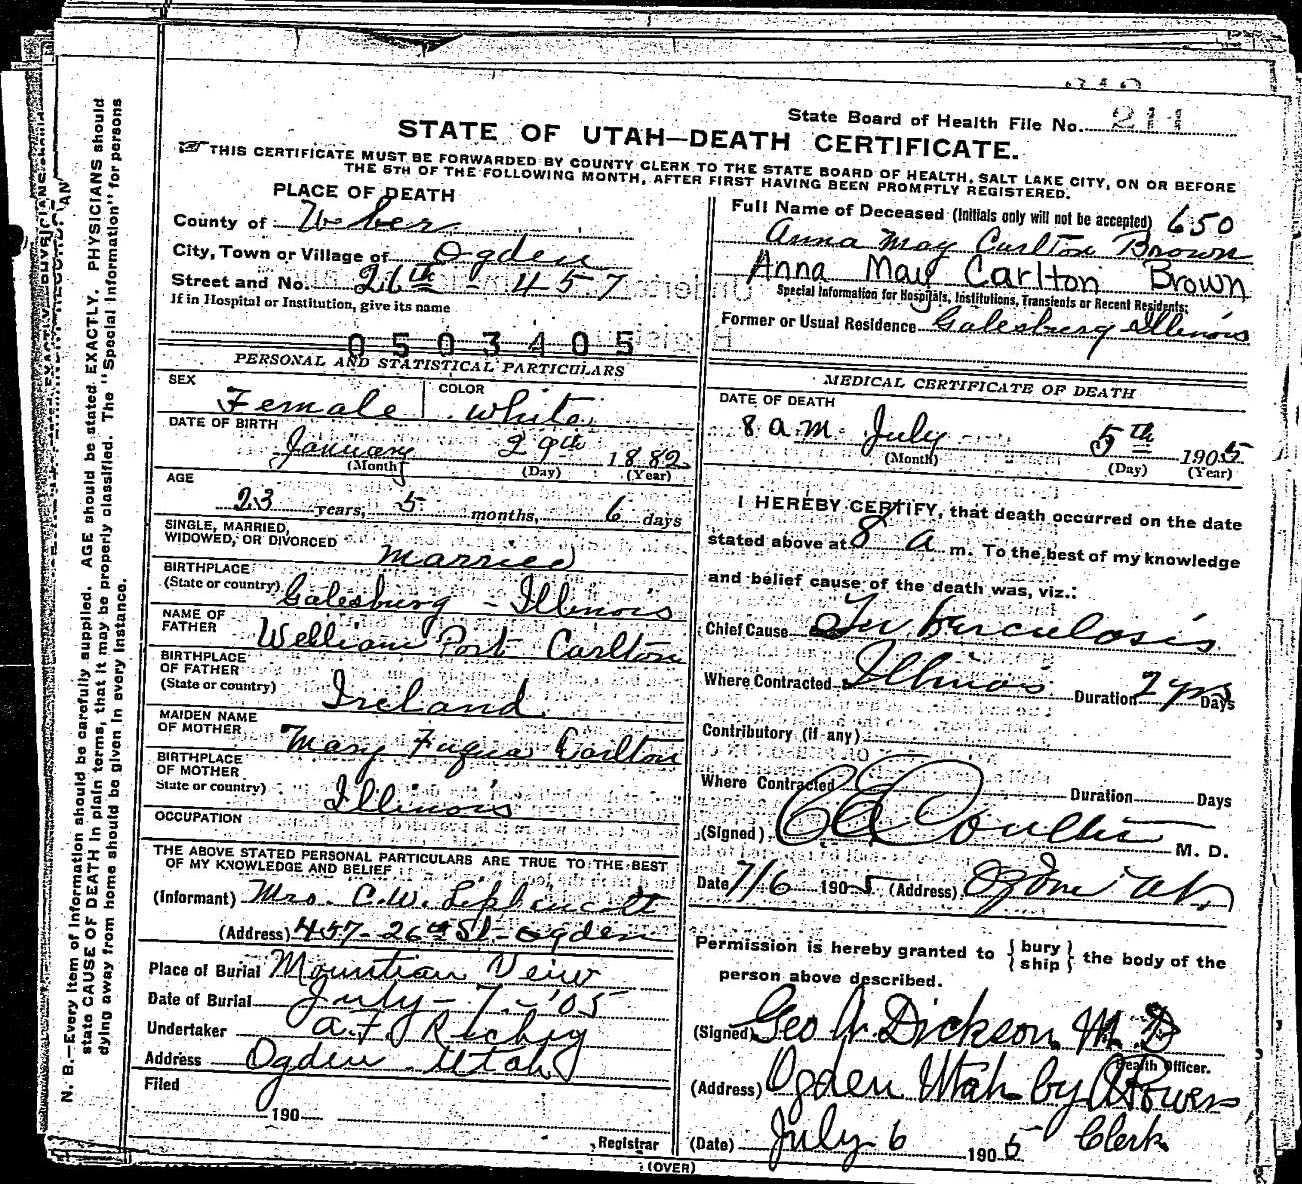 State Board of Health File No. 211
STATE OF UTAH—DEATH CERTIFICATE.
THIS CERTIFICATE MUST BE FORWARDED BY COUNTY CLERK TO THE STATE BOARD OF HEALTH, SALT LAKE CITY, ON OR BEFORE
THE 5TH OF THE FOLLOWING MONTH, AFTER FIRST HAVING BEEN PROMPTLY REGISTERED.
PLACE OF DEATH
County of Weber
City, Town or Village of Ogden
Street and No. 26th - 457
If in Hospital or Institution, give its name
0503405
PERSONAL AND STATISTICAL PARTICULARS
SEX Female COLOR White
DATE OF BIRTH
January 29th 1882
(Month) (Day) (Year)
AGE
23 years, 5 months, 6 days
SINGLE, MARRIED,
WIDOWED, OR DIVORCED Married
BIRTHPLACE
(State or country) Galesburg - Illinois
NAME OF
FATHER Welliam Port Carlton
BIRTHPLACE
OF FATHER
(State or country) Ireland
MAIDEN NAME
OF MOTHER Mary Fuqua Carlton
BIRTHPLACE
OF MOTHER
State or country) Illinois
OCCUPATION
THE ABOVE STATED PERSONAL PARTICULARS ARE TRUE TO THE BEST
OF MY KNOWLEDGE AND BELIEF
(Informant) Mrs. C.W. Lippincott
(Address) 457-26th St - Ogden
Place of Burial Mountian Veiw
Date of Burial July - 7 - '05
Undertaker
Address Ogden Utah
Filed
190
Registrar
Full Name of Deceased (Initials only will not be accepted) 650
Anna May Carlton Brown
Anna May Carlton Brown
Special Information for Hospitals, Institutions, Transients or Recent Residents:
Former or Usual Residence Galesburg Illinois
MEDICAL CERTIFICATE OF DEATH
DATE OF DEATH
8 a.m. July 5th 1905
(Month) (Day) (Year)
I HEREBY CERTIFY, that death occurred on the date
stated above at 8 a m. To the best of my knowledge
and belief cause of the death was, viz.:
Chief Cause Tuberculosis
Where Contracted Illinois Duration 2 yrs Days
Contributory (if any)
Where Contracted Duration Days
(Signed) Coulter M. D.
Date 7/6 1905 (Address) Ogden Ut.
Permission is hereby granted to { bury ship } the body of the
person above described.
(Signed) Geo W. Dickson M. D
Health Officer.
(Address) Ogden Utah by Powers
Clerk
(Date) July 6 1905
(OVER)
N. B.—Every item of information should be carefully supplied. AGE should be stated EXACTLY. PHYSICIANS should
state CAUSE OF DEATH in plain terms, that it may be properly classified. The "Special Information" for persons
dying away from home should be given in every instance.